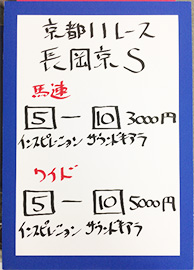 京都11レース
長岡京S
馬連
5 - 10 3000円
インスピレーション サウンドキアラ
ワイド
5 - 10 5000円
インスピレーション サウンドキアラ